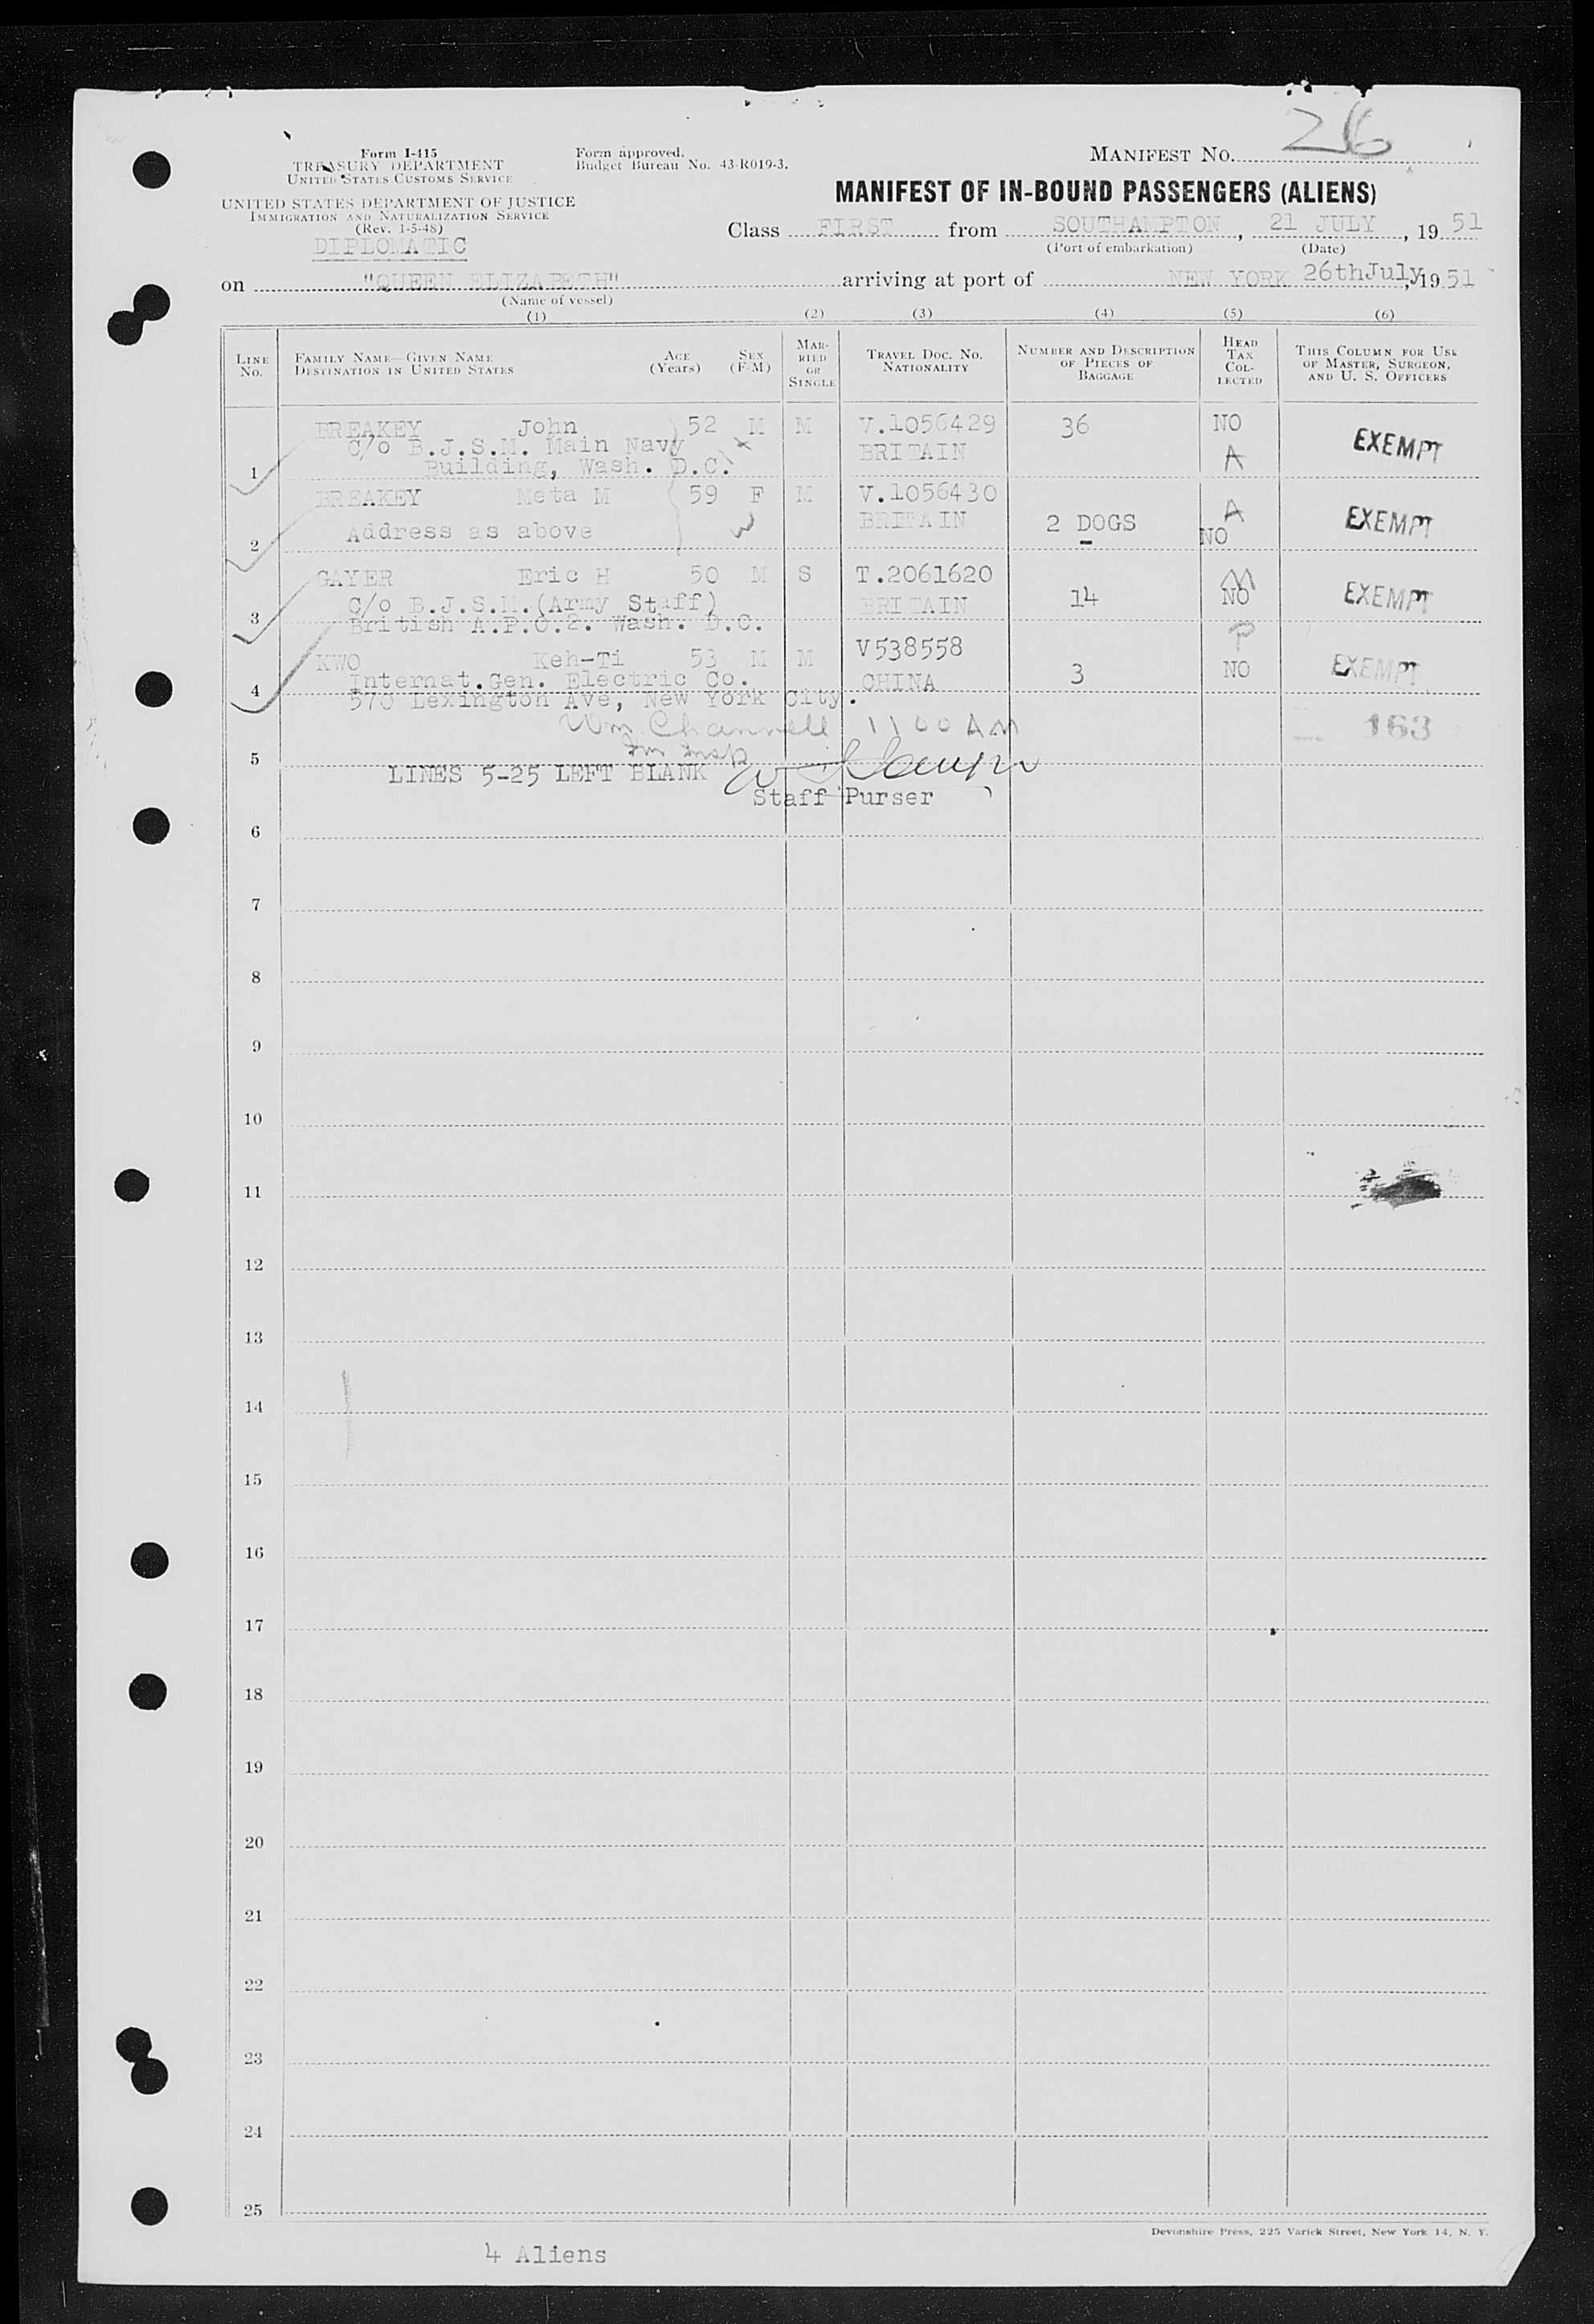 Form I-415
TREASURY DEPARTMENT
UNITED STATES CUSTOMS SERVICE
UNITED STATES DEPARTMENT OF JUSTICE
IMMIGRATION AND NATURALIZATION SERVICE
(Rev. 1-5-48)
DIPLOMATIC
Form approved.
Budget Bureau No. 43-R019-3.
MANIFEST No. 26
MANIFEST OF IN-BOUND PASSENGERS (ALIENS)
Class FIRST from SOUTHAMPTON, 21 JULY, 19 51
(Port of embarkation) (Date)
on "QUEEN ELIZABETH" arriving at port of NEW YORK 26thJuly, 19 51
(Name of vessel)
(1) (2) (3) (4) (5) (6)
LINE No. FAMILY NAME—GIVEN NAME DESTINATION IN UNITED STATES AGE (Years) SEX (F-M) MARRIED OR SINGLE TRAVEL DOC. NO. NATIONALITY NUMBER AND DESCRIPTION OF PIECES OF BAGGAGE HEAD TAX COLLECTED THIS COLUMN FOR USE OF MASTER, SURGEON, AND U. S. OFFICERS
BREAKEY John 52 M M V.1056429 36 NO
C/o B.J.S.M. Main Navy BRITAIN EXEMPT
1 Building, Wash. D.C. A
BREAKEY Meta M 59 F M V.1056430 A
Address as above BRITAIN 2 DOGS NO EXEMPT
2
GAYER Eric H 50 M S T.2061620 M
C/o B.J.S.M.(Army Staff) BRITAIN 14 NO EXEMPT
3 British A.P.O.2. Wash. D.C.
KWO Keh-Ti 53 M M V538558 P
Internat.Gen. Electric Co. CHINA 3 NO EXEMPT
4 570 Lexington Ave, New York City.
Wm Channell 1100 AM 163
Im insp
5
LINES 5-25 LEFT BLANK
Staff Purser
6
7
8
9
10
11
12
13
14
15
16
17
18
19
20
21
22
23
24
25
Devonshire Press, 225 Varick Street, New York 14, N. Y.
4 Aliens